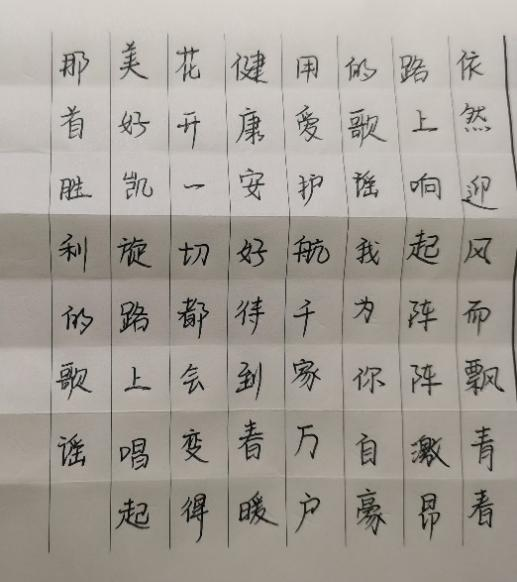 依然迎风而飘青春
路上响起阵阵激昂
的歌谣我为你自豪
用爱护航千家万户
健康安好待到春暖
花开一切都会变得
美好凯旋路上唱起
那首胜利的歌谣